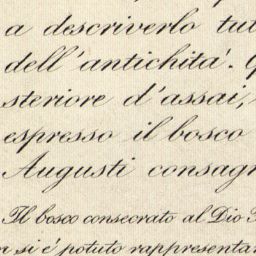 a descriverlo tut
dell'antichita'. Q
steriore d'assai,
espresso il bosco
Augusti consagr
Il bosco consecrato al Dio S
n si é potuto rappresentar